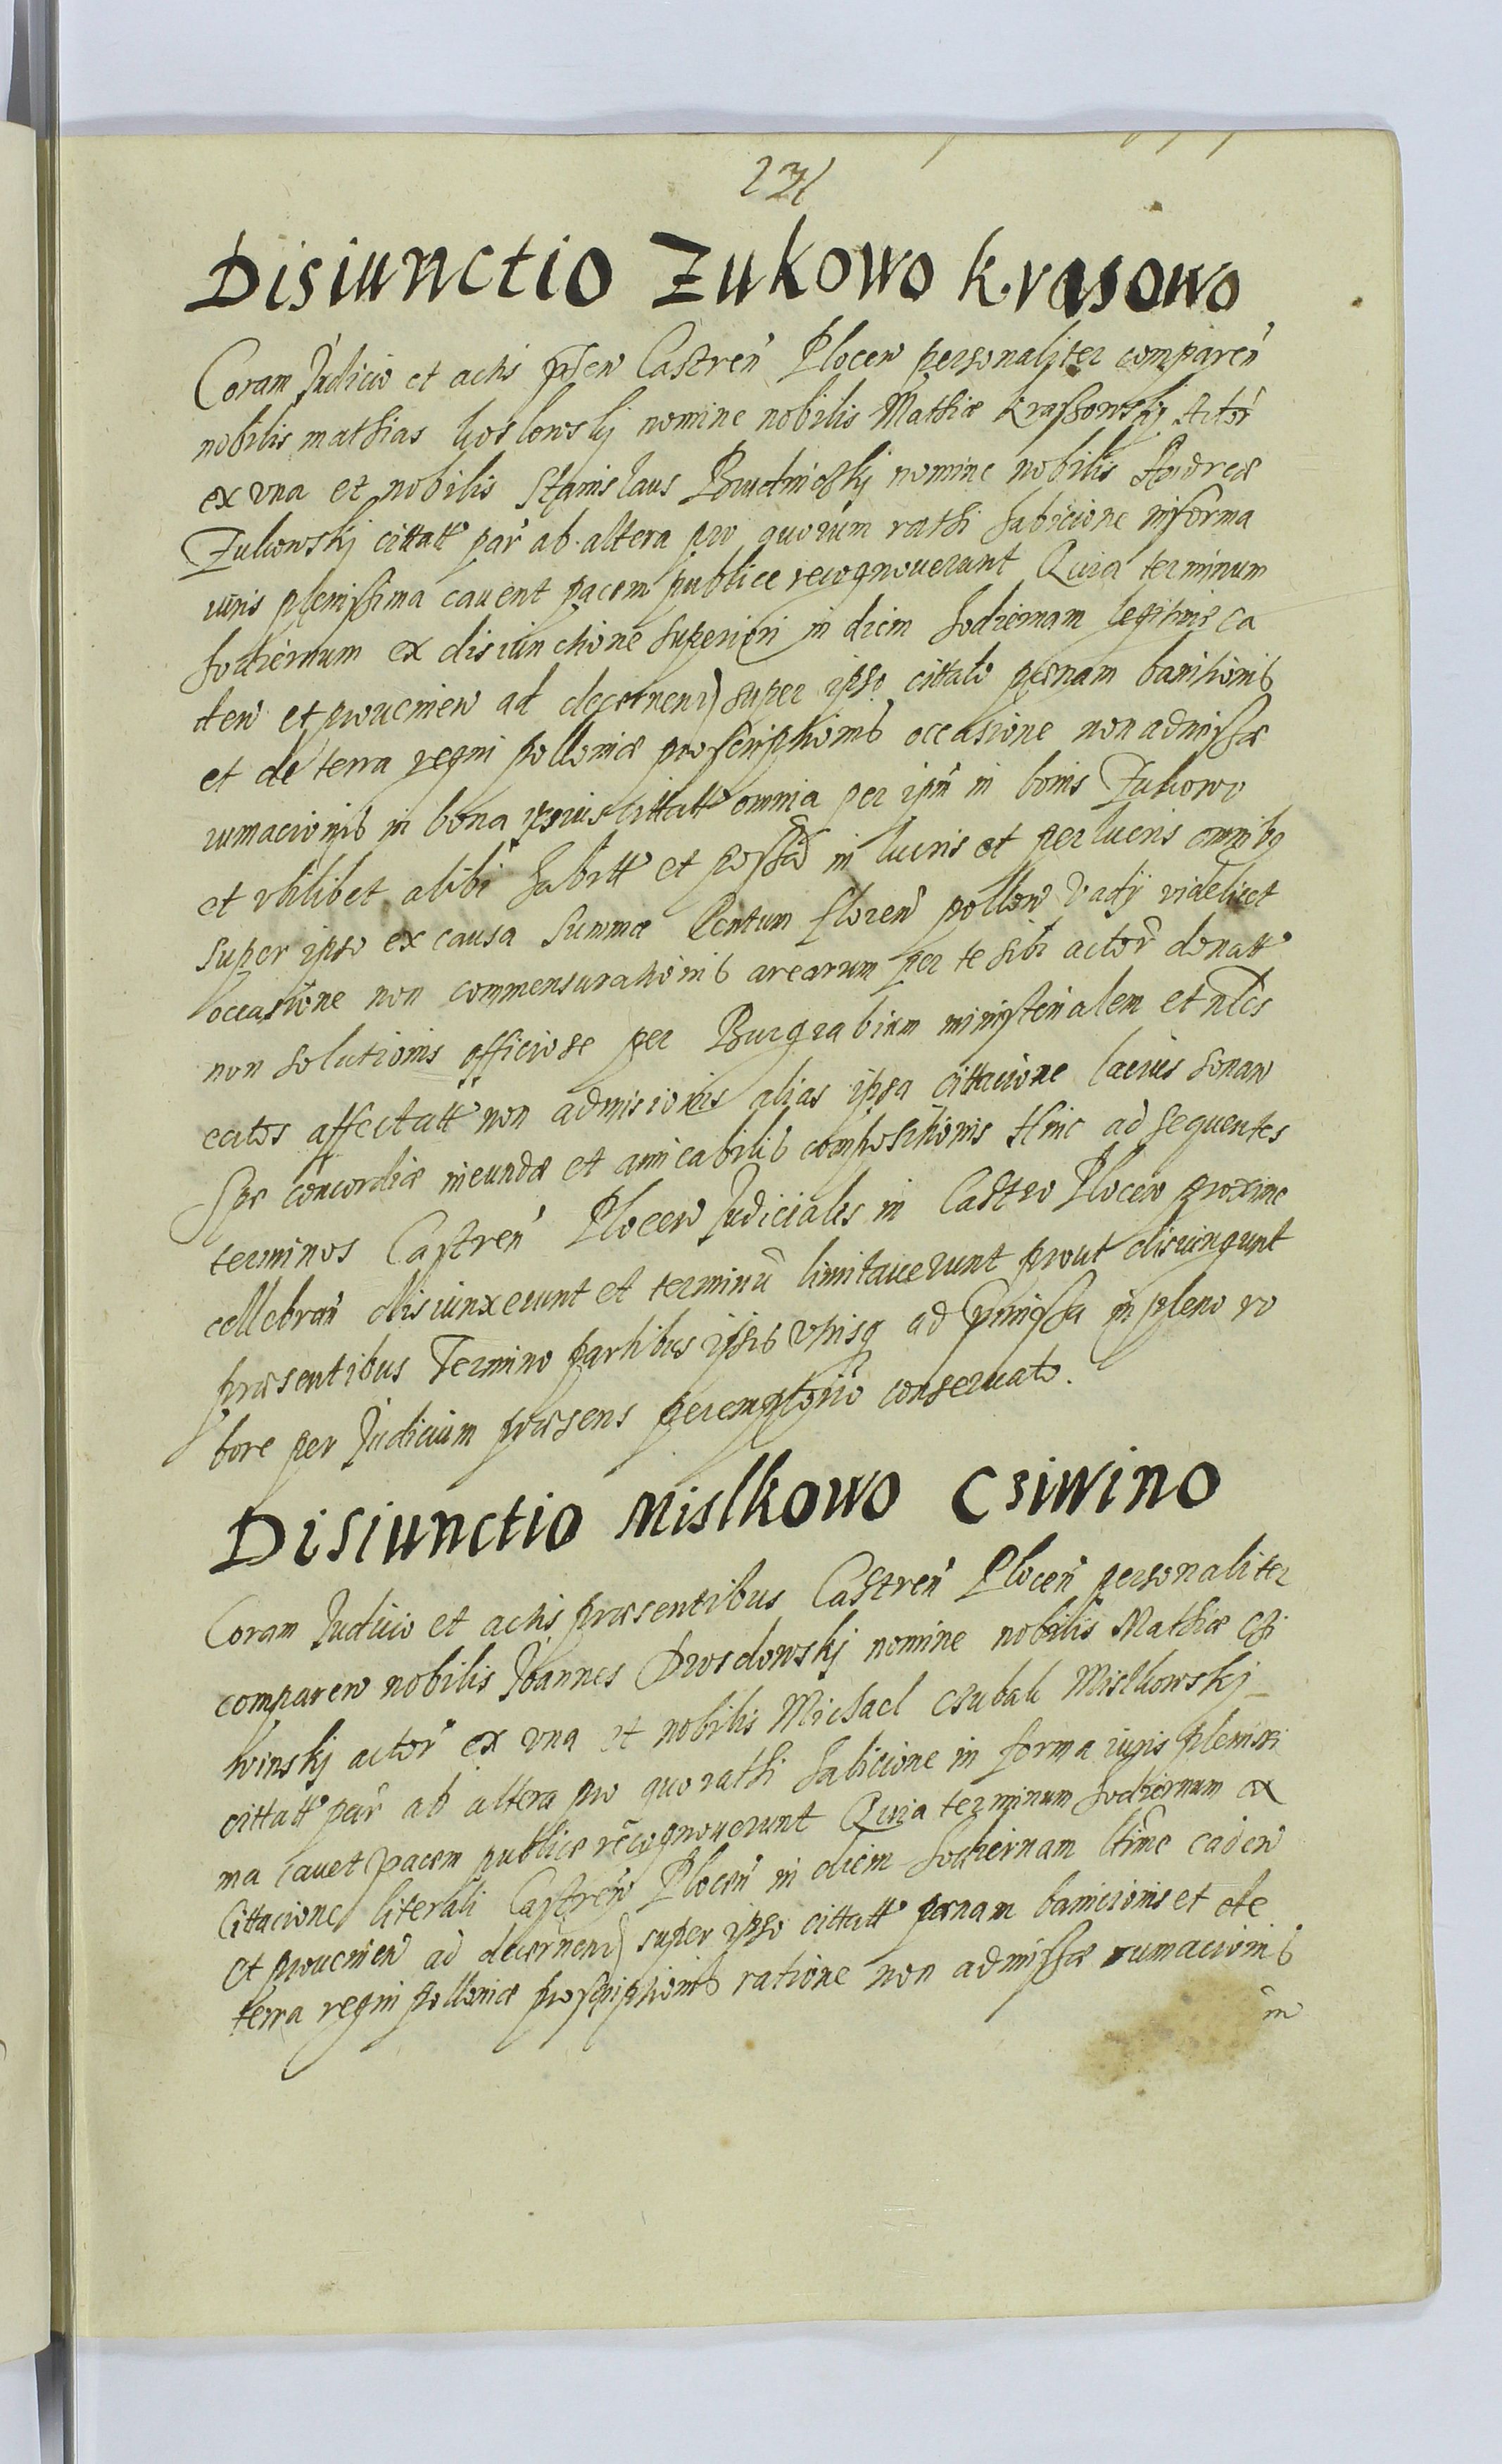 Disiunctio Zukowo Krasowo
Coram Judicio et actis pñsen Castreñ Plocen personaliter compareñ
nobilis mathias koslowskj nomine nobilis Mathiæ Krassowskj Actor
ex vna et nobilis Stanislaus nomine nobilis Andreæ
Zukowskj cittatt par ab altera pro quorum rathi habicione in forma
iuris plenissima cauent pacem publice recognouerunt Quia terminum
hodiernum ex disiunctione superiori in diem hodiernam legitime ca
den et proueniен ad decernend super ipso cittato pœnam banitionis
et de terra regni polloniæ proscriptionis occasione non admissæ
rumacionis in bona ipsius cittatt omnia per ipm in bonis Zukowo
et vbilibet alibi habitt et possess in lucris et per lucris omnibq
super ipso ex causa summæ Centum floreñ pollon Vadÿ videlicet
occasione non commensurationis arearum per te sibi actor donatt
non solutionis officiose per Burgrabium ministerialem et nbles
ectos affectatt non admisionis alias ipsa cittacione lacius sonan
Spe concordiæ ineundæ et amicabilis compositionis Hinc ad sequentes
terminos Castreñ Plocen Judiciales in Castro Plocen proxime
cellebrañ disiunxerunt et terminũ limitauerunt prout disiungunt
præsentibus Termino partibus ipsis vtrisq ad præmissa in pleno ro
bore per Judicium præsens peremptorio conseruato.
Disiunctio Mislkowo Csiwino
Coram Judicio et actis præsentibus Castreñ Ploceñ personaliter
comparen nobilis Joannes Drosdowskj nomine nobilis Mathiæ Czi
winskj actor ex vna et nobilis Michael Csubak Mislkowskj
cittatt par ab altera pro quo rathi habicione in forma iuris plenissi
ma cauet pacem publice recognouerunt Quia terminum hodiernum ex
Cittacione literali Castren Ploceñ in diem hodiernam ltime caden
et prouenien ad decernend super ipso cittatt pœnam banicionis et de
terra regni polloniæ proscriptionis ratione non admissæ rumacionis
in